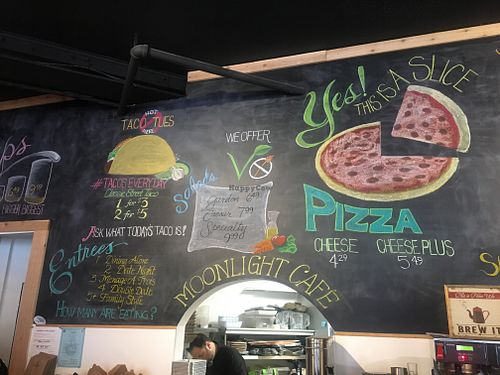 BIGGER BIGGEST
TACO TUES
#TACOS EVERYDAY
Classic Street Taco
1 for $5
2 for $5
ASK WHAT TODAY'S TACO IS!
Entrees
1 Dining Alone
2 Date Night
3 Menage A Trois
4 Double Date
5+ Family Style
HOW MANY ARE EATING?
WE OFFER
V
HappyCow
Salads
Garden 6.49
Caesar 7.99
Specialty 9.99
MOONLIGHT CAFE
Yes!
THIS IS A SLICE
PIZZA
CHEESE
4.29
CHEESE PLUS
5.49
BREW IT